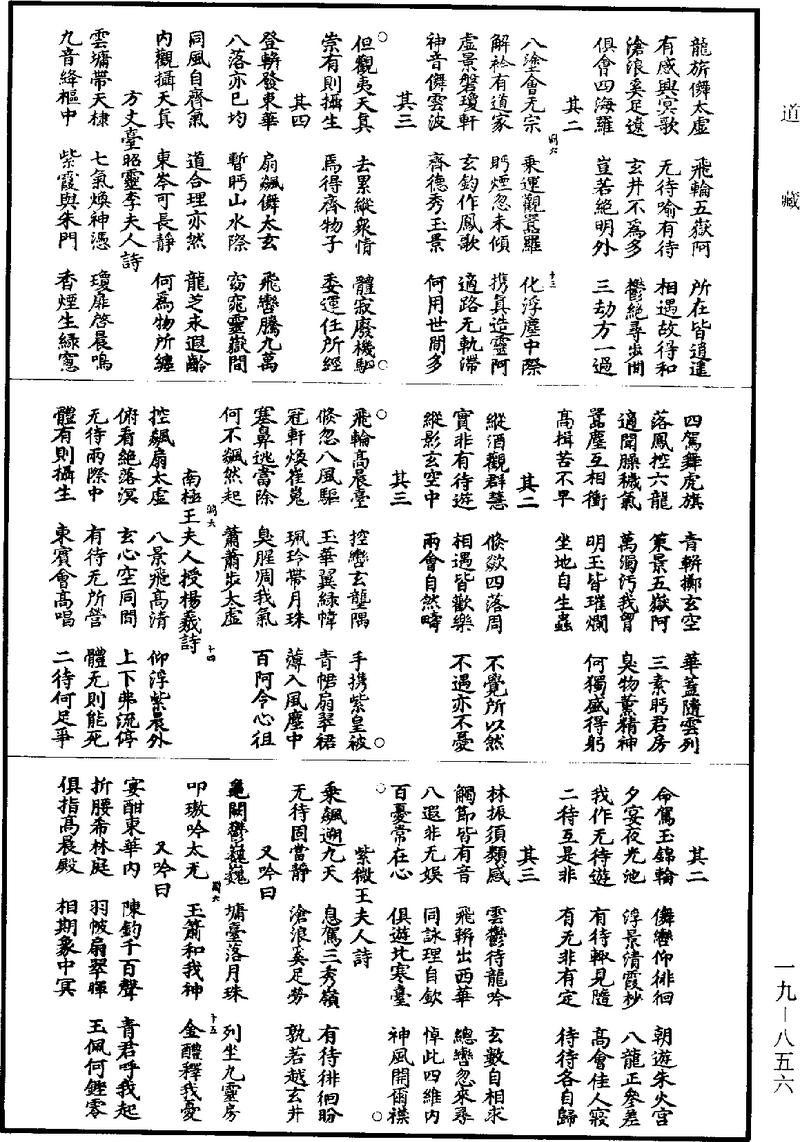 道藏
龍旂儛太虛　飛輪五嶽阿　所在皆逍遙
有感興冥歌　无待喻有待　相遇故得和
滄浪奚足遼　玄井不爲多　鬱絕尋步間
俱會四海羅　豈若絕明外　三劫方一過
其二
八塗會无宗　乘運觀囂羅　化浮塵中際
解衿有道家　眄煙忽未傾　携眞造靈阿
虛景磐瓊軒　玄鈞作鳳歌　適路无軌滯
神音儛雲波　齊德秀玉景　何用世間多
其三
但觀夷天眞　去累縱衆情　體寂廢機駟
崇有則攝生　焉得齊物子　委運任所經
其四
登軿發東華　扇飆儛太玄　飛轡騰九萬
八落亦已均　暫眄山水際　窈窕靈嶽間
同風自齊氣　道合理亦然　龍芝永遐齡
內觀攝天眞　東岑可長靜　何爲物所纏
方丈臺昭靈李夫人詩
雲墉帶天構　七氣煥神馮　瓊扉啓晨鳴
九音絳樞中　紫霞興朱門　香煙生綠窻
四駕舞虎旗　青軿擲玄空　華蓋隨雲列
落鳳控六龍　策景五嶽阿　三素眄君房
適聞臊穢氣　萬濁污我胷　臭物薰精神
囂塵互相衝　明玉皆璀爛　何獨盛得躬
高揖苦不早　坐地自生蟲
其二
縱酒觀群慧　倏欻四落周　不覺所以然
實非有待遊　相遇皆歡樂　不遇亦不憂
縱影玄空中　兩會自然疇
其三
飛輪高晨臺　控轡玄壟隅　手携紫皇袂
倏忽八風驅　玉華翼綠幃　青帬扇翠裾
冠軒煥崔嵬　珮玲帶月珠　薄入風塵中
塞鼻逃當除　臭腥凋我氣　百阿令心徂
何不飆然起　蕭蕭步太虛
南極王夫人授楊羲詩
控飆扇太虛　八景飛高清　仰浮紫晨外
俯看絕落溟　玄心空同間　上下弗流停
无待兩際中　有待无所營　體无則能死
體有則攝生　東賓會高唱　二待何足爭
其二
命駕玉錦輪　儛轡仰徘徊　朝遊朱火宮
夕宴夜光池　浮景清霞杪　八龍正參差
我作无待遊　有待輙見隨　高會佳人寢
二待互是非　有无非有定　待待各自歸
其三
林振須類感　雲鬱待龍吟　玄數自相求
觸節皆有音　飛軿出西華　總轡忽來尋
八遐非无娛　同詠理自欽　悼此四維內
百憂常在心　俱遊北寒臺　神風開爾襟
紫微王夫人詩
乘飆遡九天　息駕三秀嶺　有待徘徊盼
无待固當靜　滄浪奚足勞　孰若越玄井
又吟曰
龜闕鬱巍巍　墉臺落月珠　列坐九靈房
叩璈吟太无　玉簫和我神　金醴釋我憂
又吟曰
宴酣東華內　陳鈞千百聲　青君呼我起
折腰希林庭　羽帔扇翠暉　玉佩何鏗零
俱指高晨殿　相期象中冥
一九—八五六